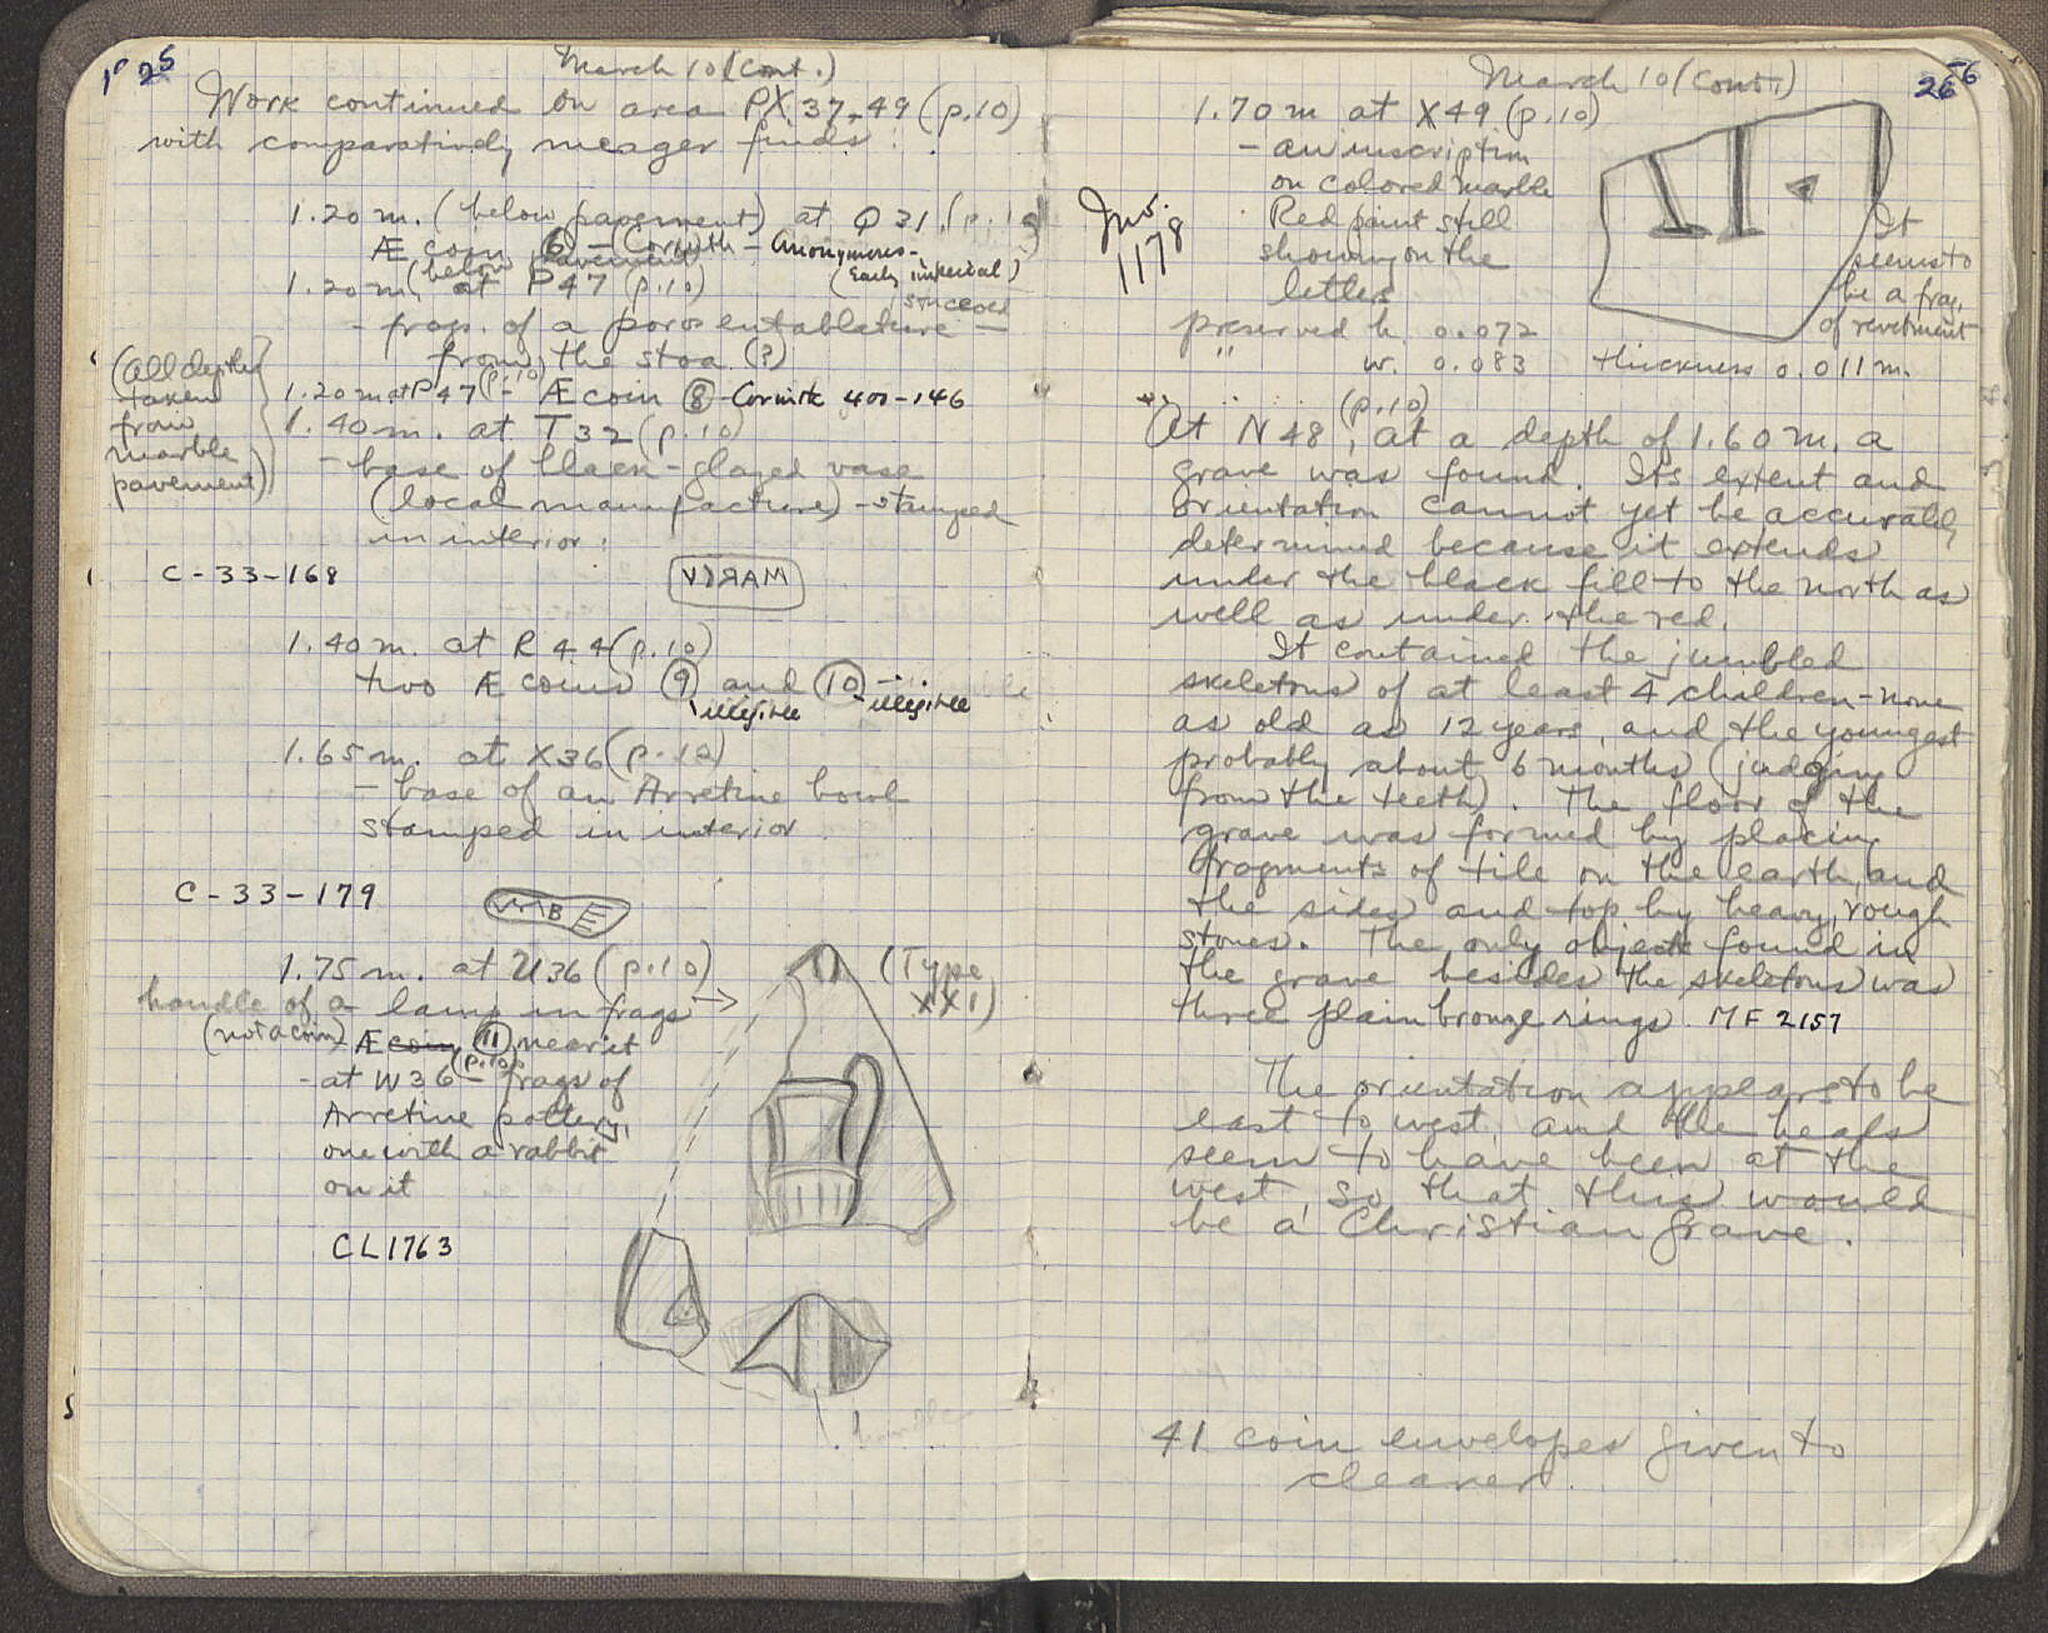 25
March 10 (cont.)
Work continued on area PX 37-49 (p.10)
with comparatively meager finds:
1.20 m. (below pavement) at Q 31 (p.10)
Æ coin 6 - Corinth - Anonymous -
(Early imperial)
1.20 m. (below pavement) at P47 (p.10)
stuccoed
- frags. of a poros entablature -
from the stoa (?)
(All depths
taken
from
marble
pavement)
1.20 m at P47 (p.10) - Æ coin 8 - Corinth 400-146
1.40 m. at T 32 (p.10)
- base of black-glazed vase
(local manufacture) - stamped
in interior:
C-33-168
1.40 m. at R 44 (p.10)
two Æ coins 9 and 10
illegible illegible
1.65 m. at X36 (p.10)
- base of an Arretine bowl
stamped in interior
C-33-179
1.75 m. at U36 (p.10)
(Type
XXI)
handle of a lamp in frags →
(not a coin) Æ coin 11 near it
- at W36 (p.10) - frags of
Arretine pottery,
one with a rabbit
on it
CL1763
handle
26
March 10 (cont.)
1.70 m at X49 (p.10)
- an inscription
on colored marble
Inv.
1178
Red paint still
showing on the
letters
It
seems to
be a frag.
of revetment
preserved h. 0.072
" w. 0.083 thickness 0.011 m.
At N48 (p.10), at a depth of 1.60 m. a
grave was found. Its extent and
orientation cannot yet be accurately
determined because it extends
under the black fill to the north as
well as under the red.
It contained the jumbled
skeletons of at least 4 children - none
as old as 12 years, and the youngest
probably about 6 months (judging
from the teeth). The floor of the
grave was formed by placing
fragments of tile on the earth, and
the sides and top by heavy, rough
stones. The only objects found in
the grave besides the skeletons was
three plain bronze rings. MF 2157
The orientation appears to be
east to west, and the heads
seem to have been at the
west, so that this would
be a Christian grave.
41 coin envelopes given to
cleaner.